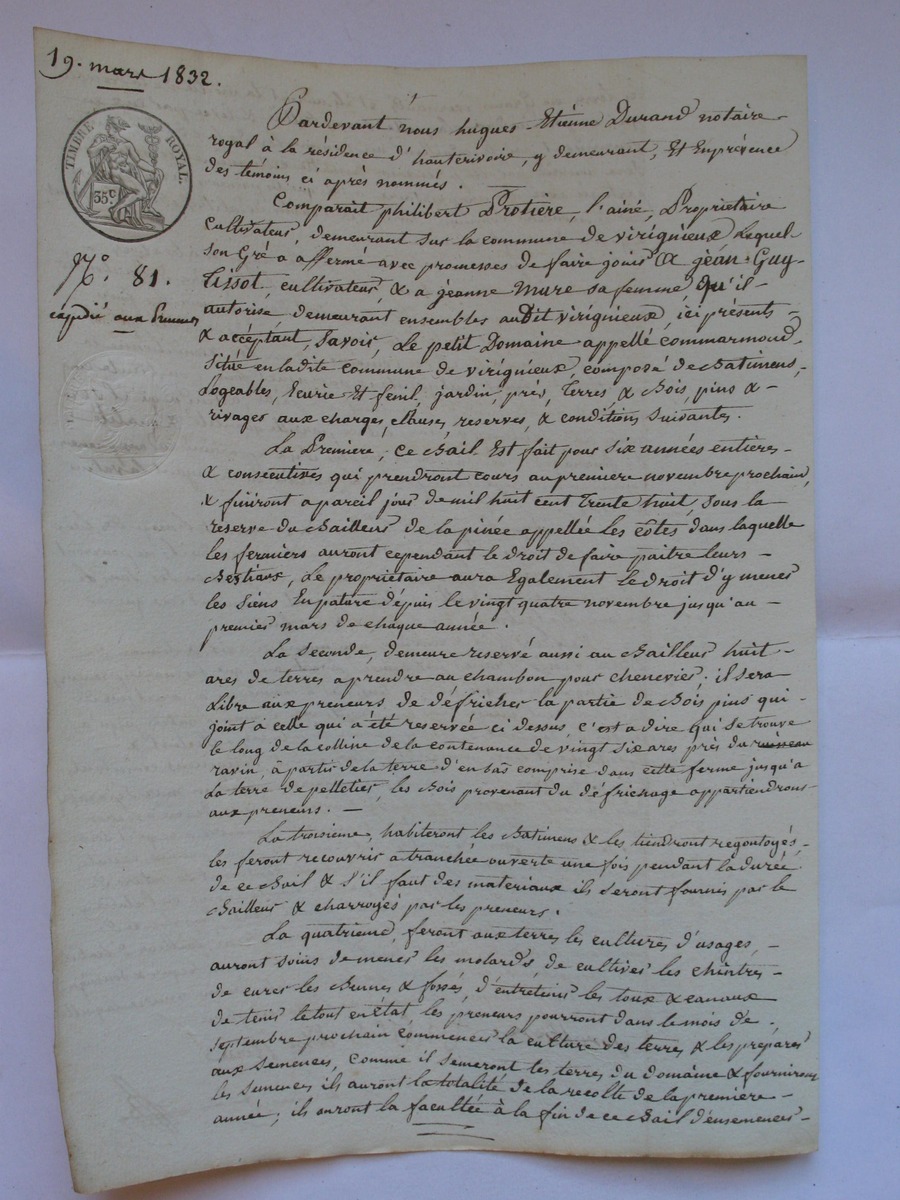 19. mars 1832.
TIMBRE ROYAL.
35 c
N.o 81.
expédié aux Preneurs
Pardevant nous hugues Etienne Durand notaire
royal à la résidence d'hauterivoire, y demeurant, Et Enprésence
des témoins ci après nommés.
Comparait philibert Protière, l'ainé, Propriétaire
cultivateur, demeurant sur la commune de virignieux Lequel
son Gré a affermé avec promesses de faire jouir a jean Guy
Tissot, cultivateur, & a jeanne Mure sa femme, qu'il
autorise demeurant ensembles audit virignieux, ici présents
& accéptant, Savoir, Le petit Domaine appellé commarmond,
situé en ladite commune de virignieux, composé de Batimens,
Logeables, Ecurie Et fenil, jardin, prés, Terres, & Bois, pins &
rivages aux charges, clauses, reserves, & conditions suivantes.
La Premiere, ce Bail Est fait pour six années entières
& consecutives qui prendront cours au premier novembre prochain,
& finiront a pareil jour de mil huit cent trente huit, sous la
reserve du Bailleur de la pinée appellée les côtes dans laquelle
les fermiers auront cependant le droit de faire paitre leurs
Bestiaux, Le propriétaire aura Egalement le droit d'y mener
les siens En pature dépuis le vingt quatre novembre jusqu'au
premier mars de chaque année.
La seconde, demeure reservé aussi au Bailleur huit
ares de terres a prendre au chambon pour chenevier; il sera
Libre aux preneurs de défricher la partie de Bois pins qui
joint à celle qui a été reservée ci dessus, c'est a dire qui se trouve
le long de la colline de la contenance de vingt six ares près du ruisseau
ravin, à partir de la terre d'en bas comprise dans cette ferme jusqu'a
La terre de pelletier, les Bois provenant du défrichage appartiendront
aux preneurs.
La troisieme, habiteront les Batimens & les tiendront regoutoyés,
les feront recouvrir a tranchée ouverte une fois pendant la durée
de ce Bail & s'il faut des materiaux ils seront fournis par le
Bailleur & charroyés par les preneurs.
La quatrieme, feront aux terres les cultures d'usages,
auront soins de mener les motards, de cultiver les chintres
de curer les Bennes & fossés, d'entretenir les toux & canaux
de tenir le tout en état, les preneurs pourront dans le mois de
septembre prochain commencer la culture des terres & les préparer
aux semences, comme il semeront les terres du domaine & fourniront
les semences ils auront la totalité de la recolte de la première
année; ils auront la facultée à la fin de ce Bail d'ensemencer